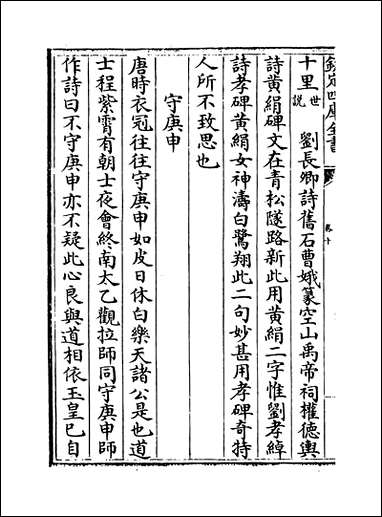 欽定四庫全書
卷十
十里世說 劉長卿詩舊石曹娥篆空山禹帝祠權德輿
詩黄絹碑文在青松隧路新此用黄絹二字惟劉孝綽
詩孝碑黄絹女神濤白鷺翔此二句妙甚用孝碑奇特
人所不致思也
守庚申
唐時衣冠往往守庚申如皮日休白樂天諸公是也道
士程紫霄有朝士夜會終南太乙觀拉師同守庚申師
作詩曰不守庚申亦不疑此心良與道相依玉皇已自